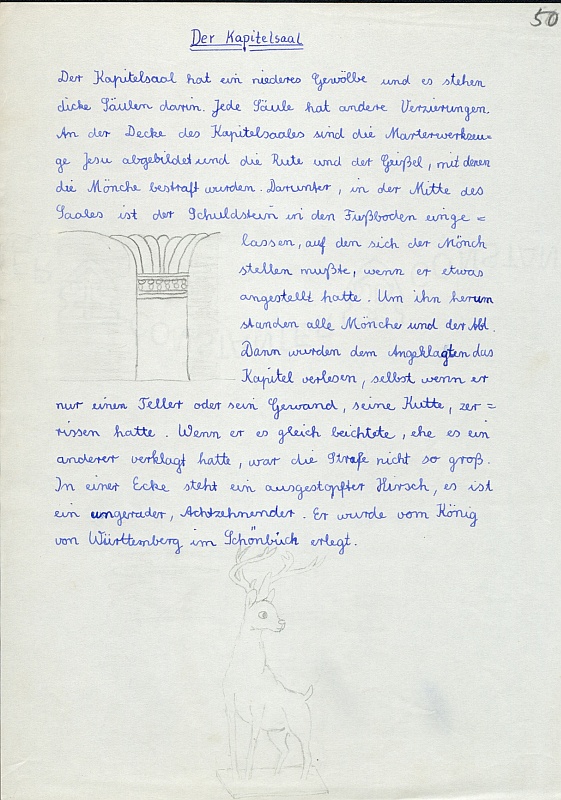 50
Der Kapitelsaal
Der Kapitelsaal hat ein niederes Gewölbe und es stehen
dicke Säulen darin. Jede Säule hat andere Verzierungen.
An der Decke des Kapitelsaales sind die Marterwerkzeu=
ge Jesu abgebildet und die Rute und der Geißel, mit deren
die Mönche bestraft wurden. Darunter, in der Mitte des
Saales ist der Schuldstein in den Fußboden einge=
lassen, auf den sich der Mönch
stellen mußte, wenn er etwas
angestellt hatte. Um ihn herum
standen alle Mönche und der Abt.
Dann wurden dem Angeklagten das
Kapitel verlesen, selbst wenn er
nur einen Teller oder sein Gewand, seine Kutte, zer=
rissen hatte. Wenn er es gleich beichtete, ehe es ein
anderer verklagt hatte, war die Strafe nicht so groß.
In einer Ecke steht ein ausgestopfter Hirsch, es ist
ein ungerader, Achtzehnender. Er wurde vom König
von Württemberg im Schönbuch erlegt.